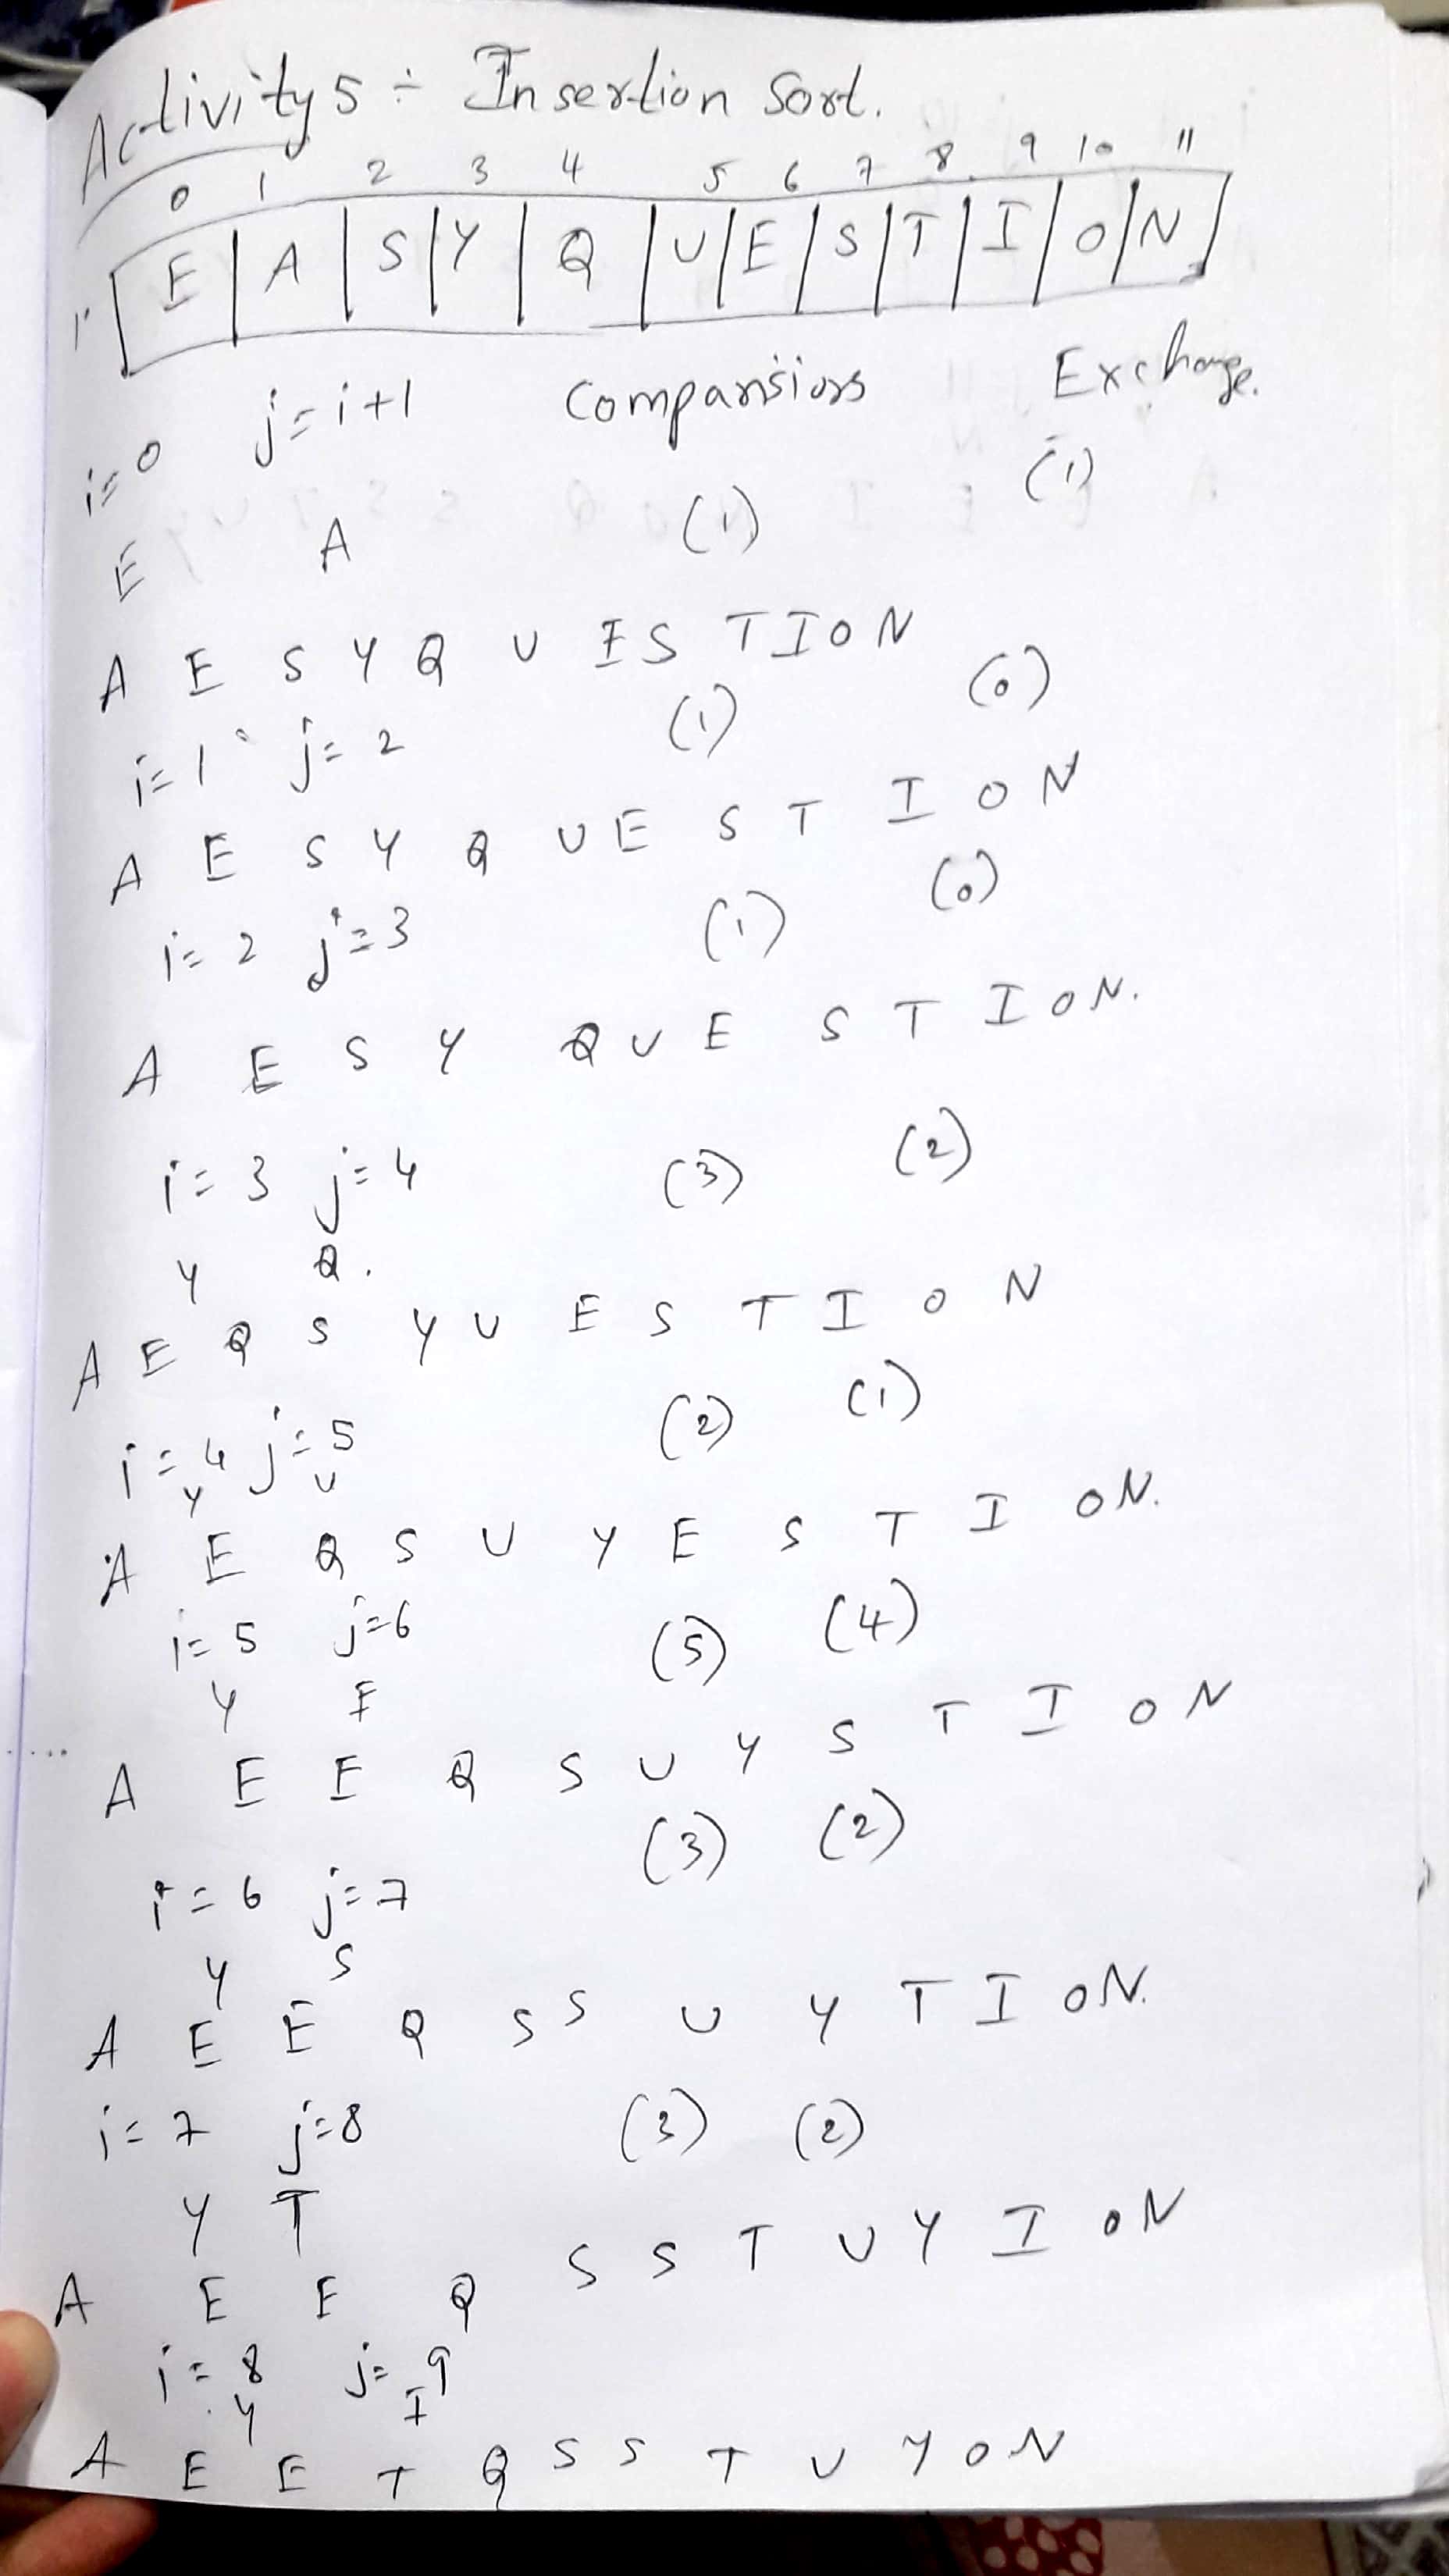 Activity 5 ÷ Insertion Sort.
0 1 2 3 4 5 6 7 8 9 10 11
E A S Y Q U E S T I O N
i=0 j=i+1 Comparisiors Exchange.
E A (1) (1)
A E S Y Q U E S T I O N
i=1 j=2 (1) (0)
A E S Y Q U E S T I O N
i=2 j=3 (1) (0)
A E S Y Q U E S T I O N.
i=3 j=4 (3) (2)
Y Q.
A E Q S Y U E S T I O N
i=4 j=5 (2) (1)
Y U
A E Q S U Y E S T I O N.
i=5 j=6 (5) (4)
Y E
A E E Q S U Y S T I O N
i=6 j=7 (3) (2)
Y S
A E E Q S S U Y T I O N.
i=7 j=8 (3) (2)
Y T
A E E Q S S T U Y I O N
i=8 j=9
Y I
A E E I Q S S T U Y O N